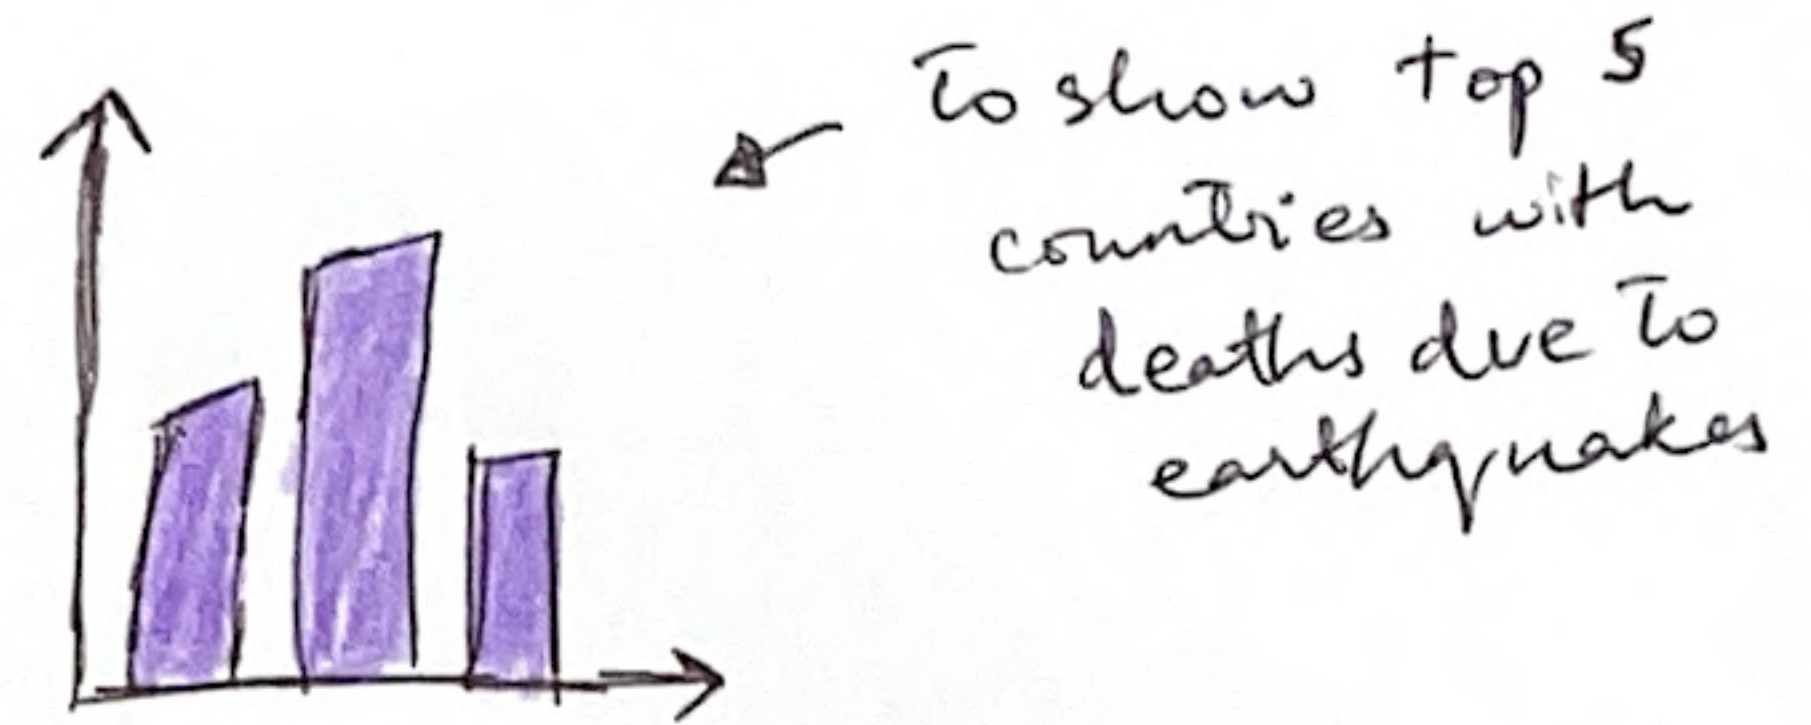 To show top 5
countries with
deaths due to
earthquakes